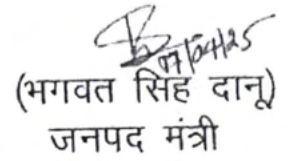 07/04/25
(भगवत सिंह दानू)
जनपद मंत्री